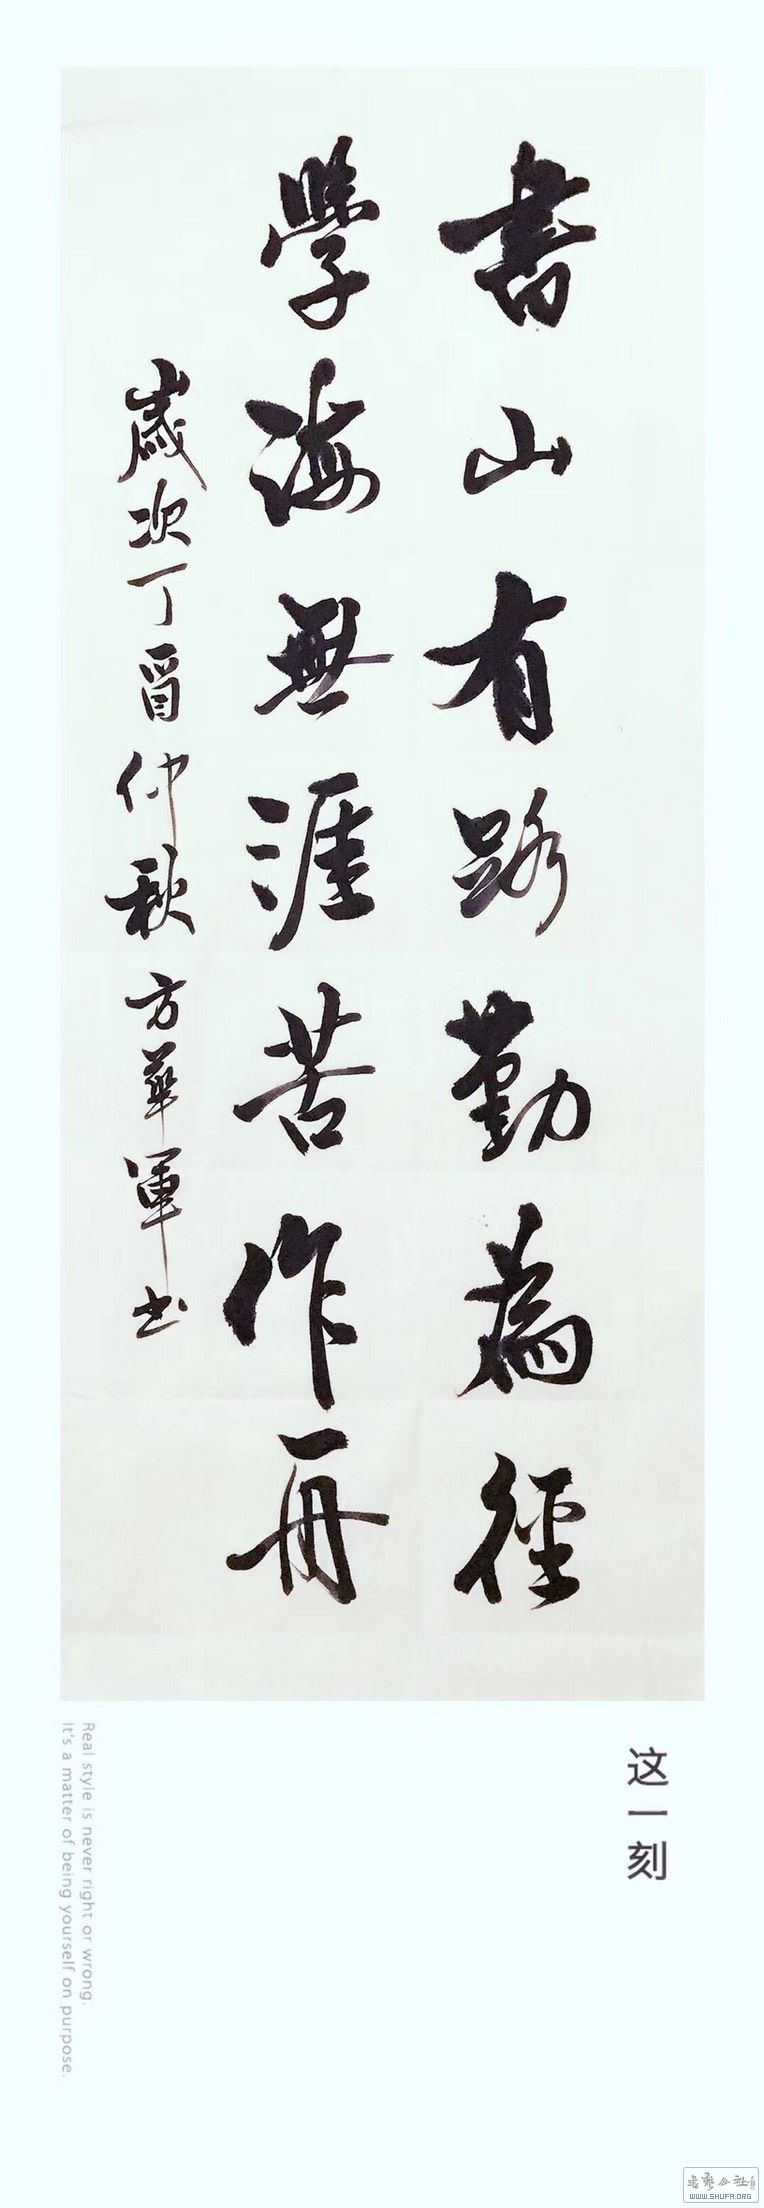 書山有路勤為徑
學海無涯苦作舟
歲次丁酉仲秋方華軍书
这一刻
Real style is never right or wrong.
It's a matter of being yourself on purpose.
書藝公社
WWW.SHUFA.ORG